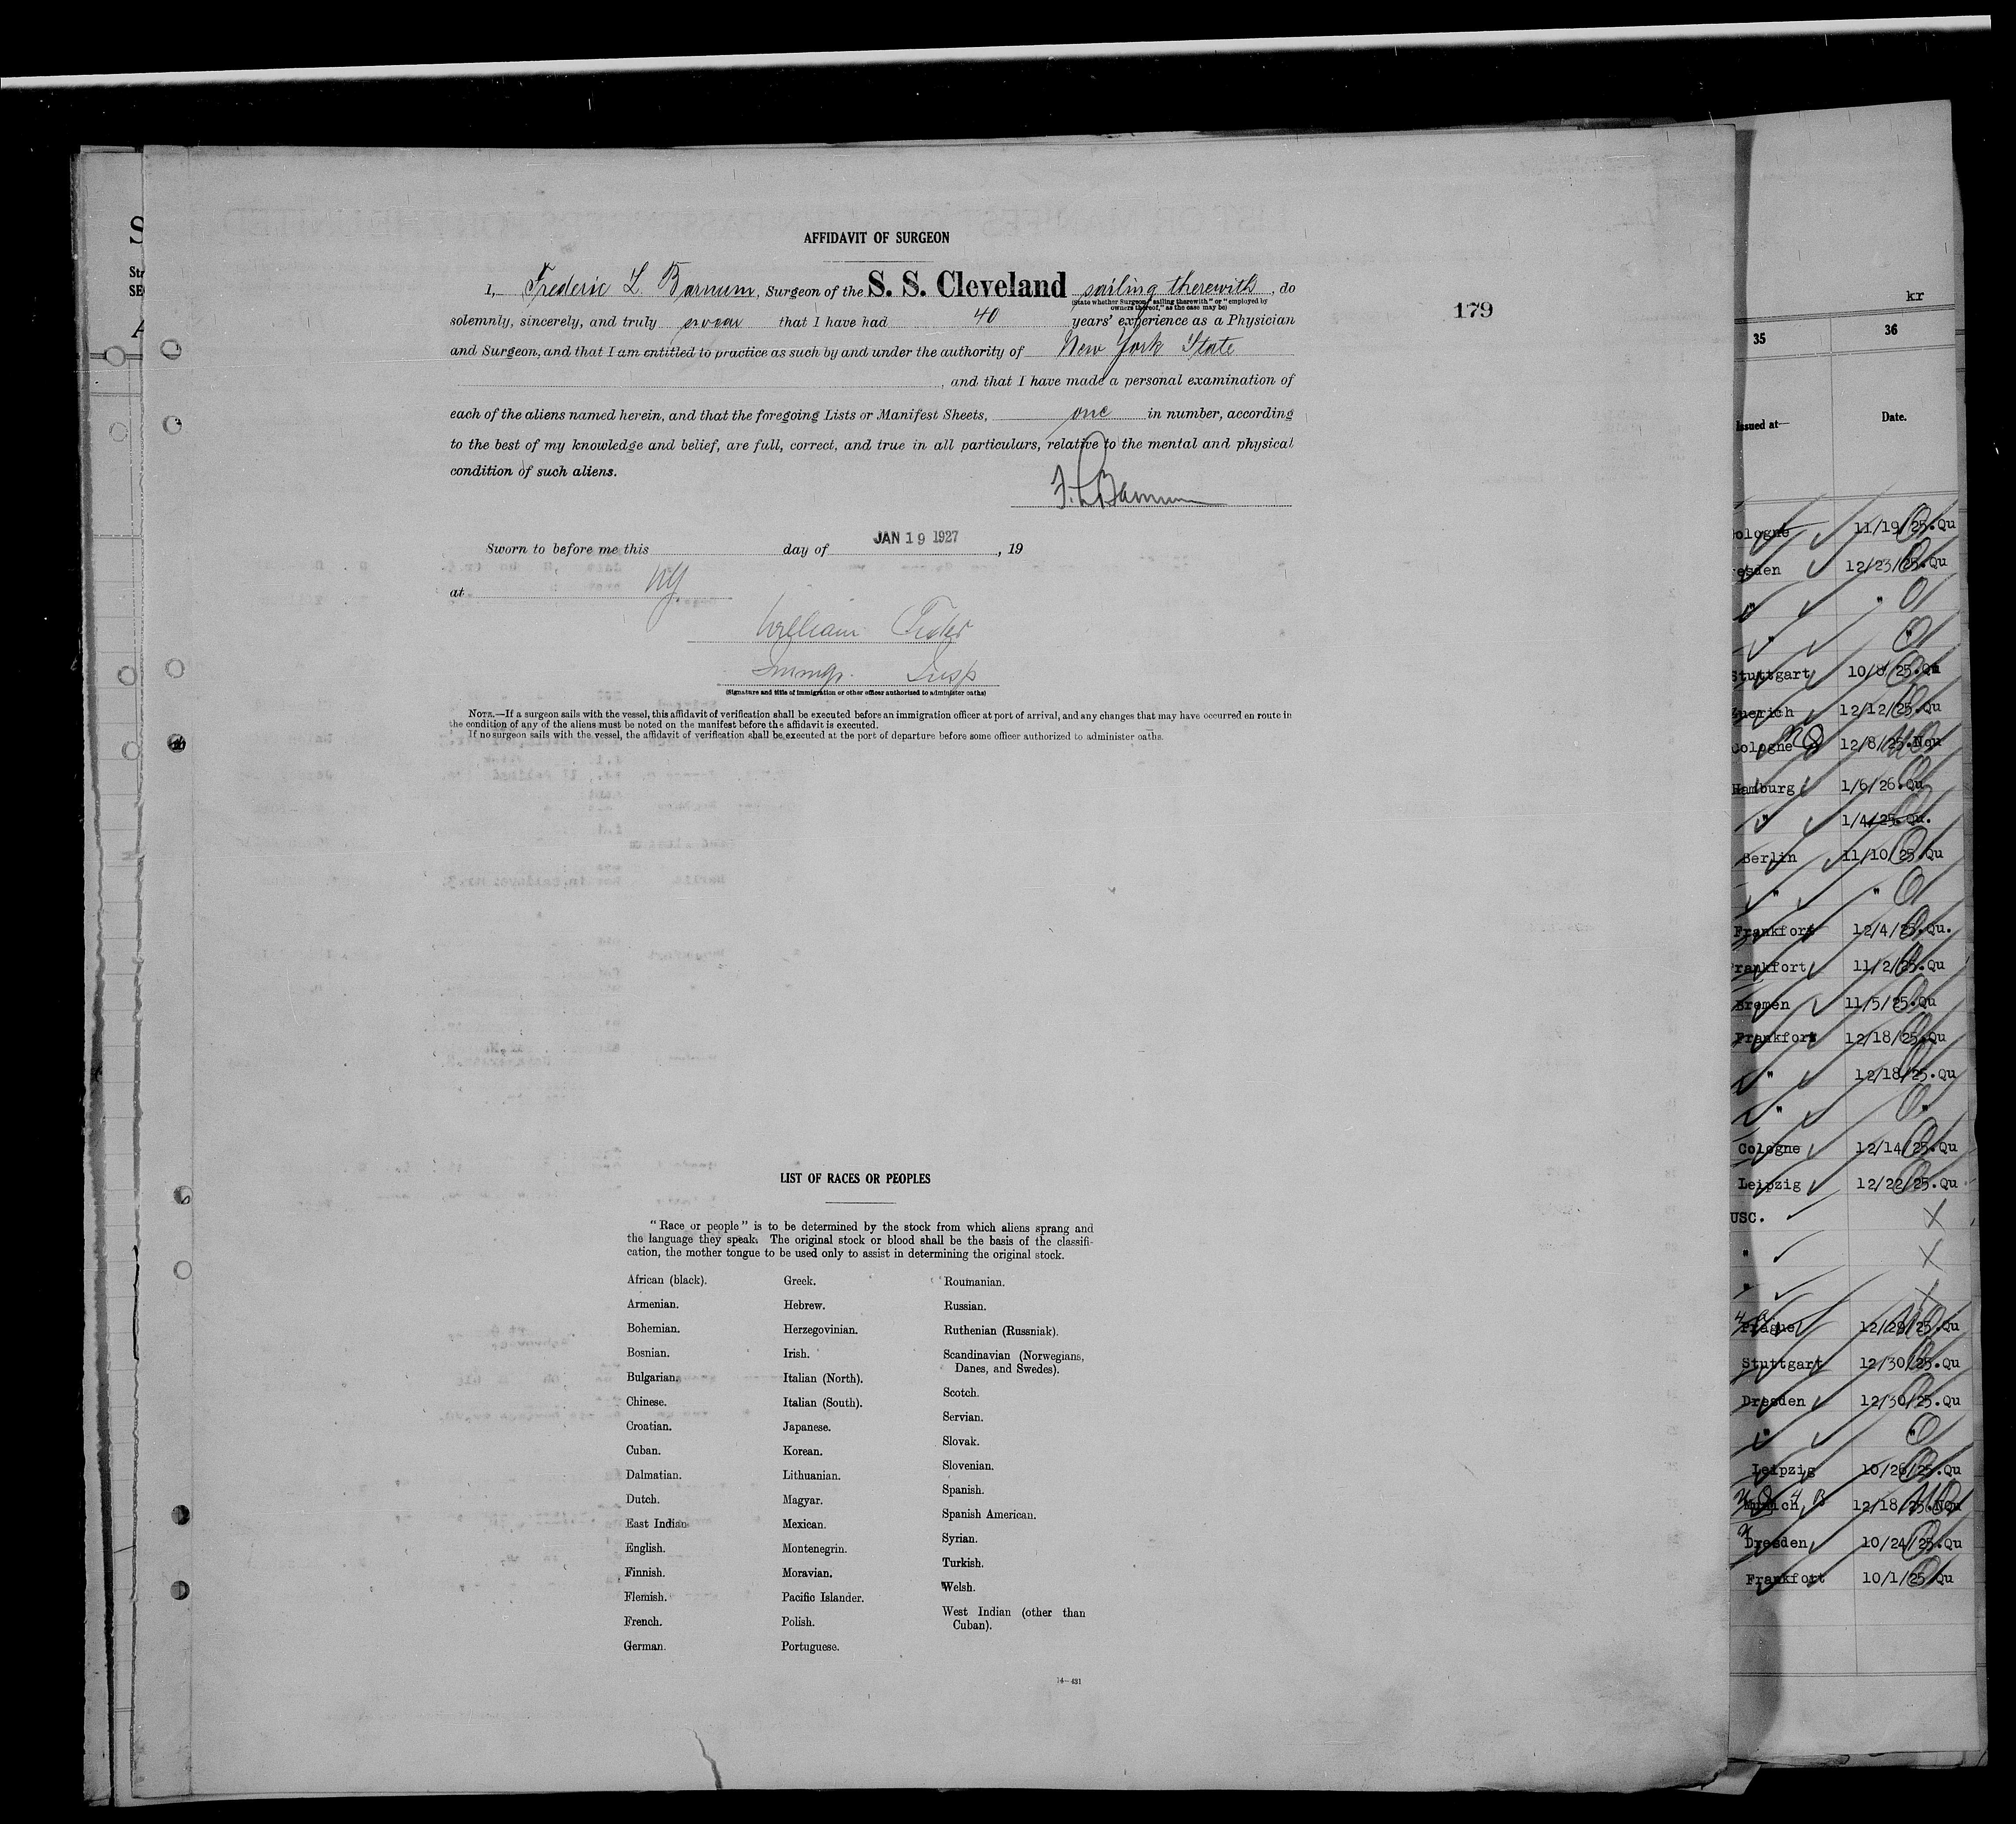 AFFIDAVIT OF SURGEON
I, Frederic L. Barnum, Surgeon of the S. S. Cleveland sailing therewith, do
(State whether Surgeon "sailing therewith" or "employed by
owners thereof," as the case may be)
179
solemnly, sincerely, and truly swear that I have had 40 years' experience as a Physician
and Surgeon, and that I am entitled to practice as such by and under the authority of New York State
, and that I have made a personal examination of
each of the aliens named herein, and that the foregoing Lists or Manifest Sheets, one in number, according
to the best of my knowledge and belief, are full, correct, and true in all particulars, relative to the mental and physical
condition of such aliens.
F. L. Barnum
Sworn to before me this day of JAN 19 1927, 19
at NY
William
Immgr. Insp
(Signature and title of immigration or other officer authorized to administer oaths)
NOTE.—If a surgeon sails with the vessel, this affidavit of verification shall be executed before an immigration officer at port of arrival, and any changes that may have occurred en route in
the condition of any of the aliens must be noted on the manifest before the affidavit is executed.
If no surgeon sails with the vessel, the affidavit of verification shall be executed at the port of departure before some officer authorized to administer oaths.
LIST OF RACES OR PEOPLES
"Race or people" is to be determined by the stock from which aliens sprang and
the language they speak. The original stock or blood shall be the basis of the classifi-
cation, the mother tongue to be used only to assist in determining the original stock.
African (black).
Armenian.
Bohemian.
Bosnian.
Bulgarian.
Chinese.
Croatian.
Cuban.
Dalmatian.
Dutch.
East Indian
English.
Finnish.
Flemish.
French.
German.
Greek.
Hebrew.
Herzegovinian.
Irish.
Italian (North).
Italian (South).
Japanese.
Korean.
Lithuanian.
Magyar.
Mexican.
Montenegrin.
Moravian.
Pacific Islander.
Polish.
Portuguese.
Roumanian.
Russian.
Ruthenian (Russniak).
Scandinavian (Norwegians,
Danes, and Swedes).
Scotch.
Servian.
Slovak.
Slovenian.
Spanish.
Spanish American.
Syrian.
Turkish.
Welsh.
West Indian (other than
Cuban).
14—431
kr
35 36
Issued at— Date.
ologne 11/19/25.Qu
esden 12/23/25.Qu
" "
" "
Stuttgart 10/8/25.Qu
Zuerich 12/12/25.Qu
Cologne 12/8/25.Nqu
Hamburg 1/6/26.Qu
" 1/4/25.Qu.
Berlin 11/10/25.Qu
" "
Frankfort 12/4/25.Qu.
Frankfort 11/2/25.Qu
Bremen 11/5/25.Qu
Frankfort 12/18/25.Qu
" 12/18/25.Qu
" "
Cologne 12/14/25.Qu
Leipzig 12/22/25.Qu
USC. X
" X
" X
Prague 12/28/25.Qu
Stuttgart 12/30/25.Qu
Dresden 12/30/25.Qu
" "
Leipzig 10/26/25.Qu
Munich 12/18/25.NQu
Dresden 10/24/25.Qu
Frankfort 10/1/25 Qu